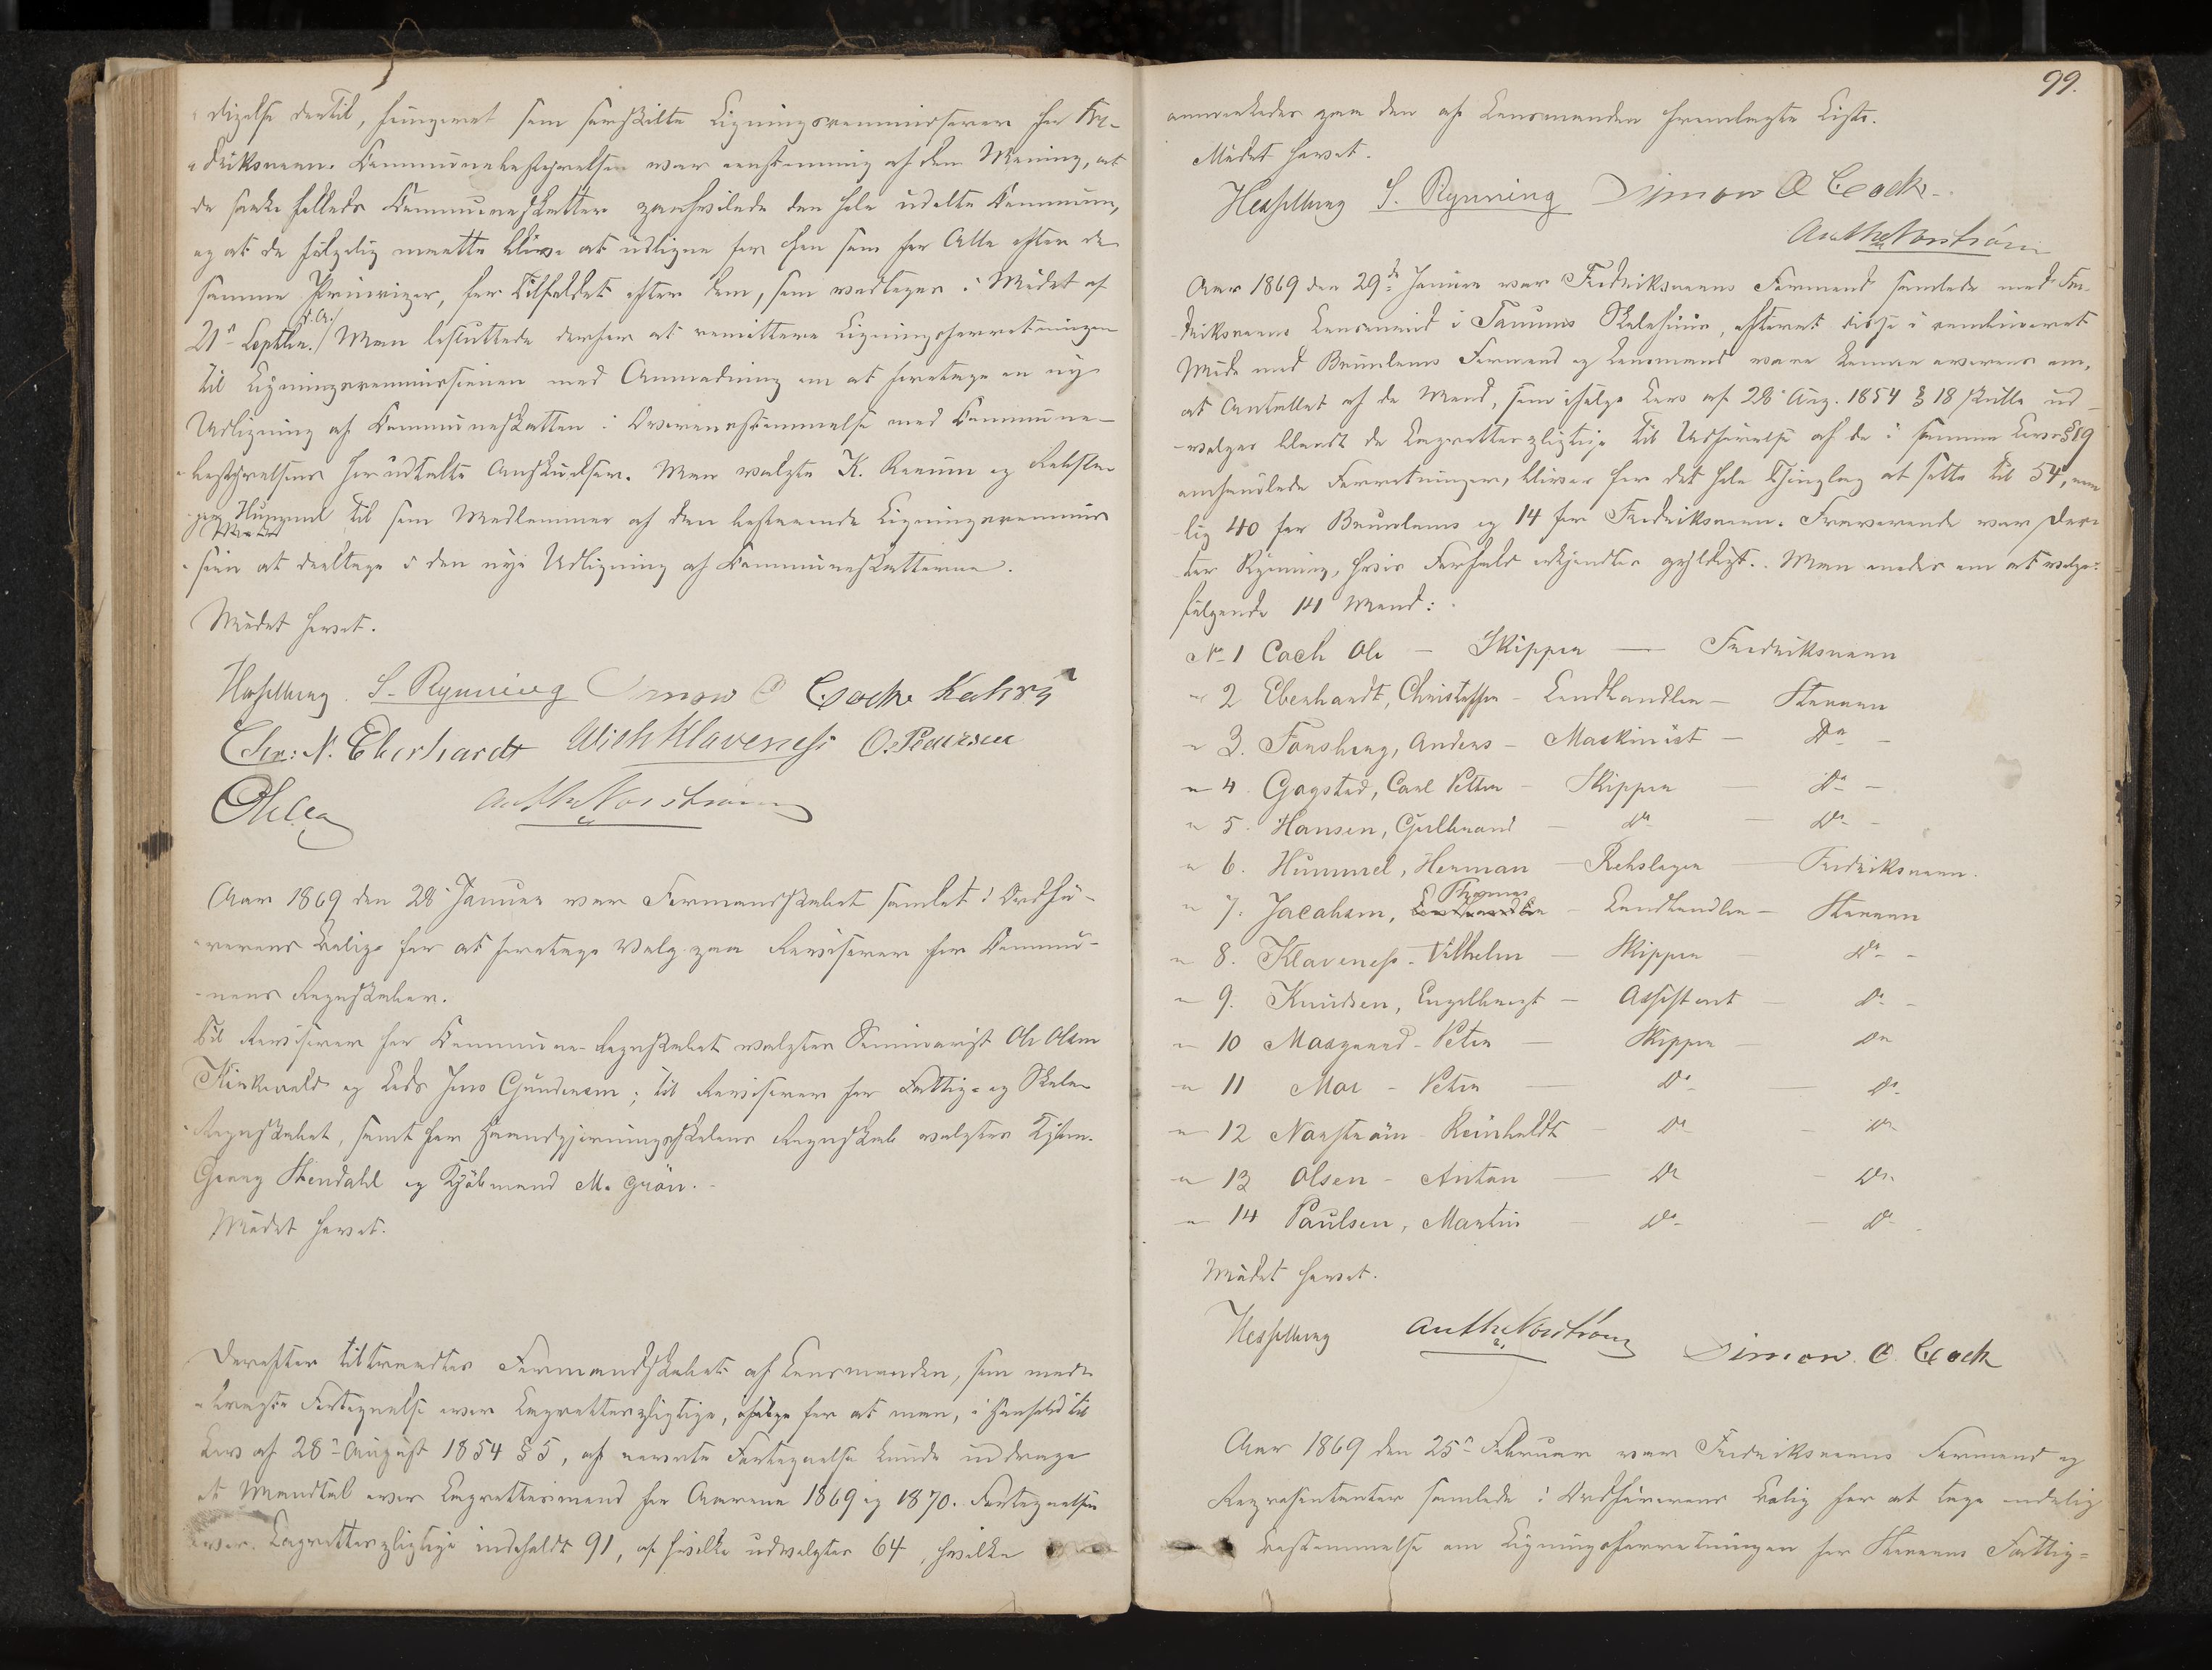 digelse dertil, fungeret som særskilte Ligningscommissairer for Fre-
driksværn. Communebestyrelsen var eenstemmig af den Mening, at
de fælleds Communeskatter paahvilede den hele udelte Commune,
og at de følgelig maatte blive at udligne for som for Alle efter de
samme Principer, for Tilfældet efter dem, som vedtoges i Mødet af
21de Septbr. f. A. Man besluttede derfor at remittere Ligningsforretningen
til Ligningscommissionen med Anmodning om at foretage en ny
Udligning af Communeskatten i Overensstemmelse med Commune-
bestyrelsens her udtalte Anskuelser. Man valgte K. og Rebsla-
ger Hummel til som Medlemmer af den bestaaende Ligningscommis
sion at deeltage i den nye Udligning af Communeskatterne.
Mødet hævet.
Hesselberg S. Rynning Simon O Cock Kahrs
Chr: N. Eberhardt Wilh Klaveness O. Paulsen
Anth Norström
Aar 1869 den 28 Januar var Formandskabet samlet i Ordfø-
rerens Bolig for at foretage Valg paa Revisorer for Commu-
nens Regnskaber.
Til Revisorer for Commune-Regnskabet valgtes Seminarist Ole Olsen
og Lods Jens Gundersen; til Revisorer for Fattig- og Skole-
Regnskabet, samt for Haandgjerningsskolens Regnskab valgtes
Georg Stendahl og Kjøbmand M. Grön.
Mødet hævet.
Derefter tiltraadtes Formandskabet af Lensmanden, som med-
bragte Fortegnelse over Lagretterpligtige, for at man, i Henhold til
Lov af 28de August 1854 § 5, af nævnte Fortegnelse kunde uddrage
et Mandtal over Lagrettesmænd for Aarene 1869 og 1870. Fortegnelsen
over Lagretterpligtige indeholdt 91, af hvilke udvalgtes 64, hvilke
99.
anmærkedes paa den af Lensmanden fremlagte Liste.
Mødet hævet.
Hesselberg S. Rynning Simon O Cock
Anth Norström
Aar 1869 den 29de Januar var Fredriksværns Formænd samlede med Fre-
driksværns Lensmand i Tanums Skolehuus, efterat disse i combineret
Møde med Brunlanes Formænd og Lensmand vare komne overens om,
at Antallet af de Mænd, som ifølge Lov af 28 Aug. 1854 § 18 skulle ud-
vælges blandt de Lagretterpligtige til Udførelse af de i samme Lovs § 19
omhandlede Forretninger, bliver for det hele Thinglag at sætte til 54, nem
lig 40 for Brunlanes og 14 for Fredriksværn. Fraværende var Doc-
tor Rynning, hvis Forfald erkjendtes gyldigt. Man enedes om at vælge
følgende 14 Mænd:
No 1 Cock Ole — Skipper — Fredriksværn
" 2 Eberhardt, Christoffer - Landhandler — Stavern
" 3. Forsberg, Anders — Maskinist — Do —
" 4. Gogstad, Carl Petter — Skipper — Do —
" 5. Hansen, Gulbrand — Do — Do -
" 6. Hummel, Herman — Rebslager — Fredriksværn.
" 7. Jacobsen, Thomas — Landhandler — Stavern
" 8. Klaveness - Vilhelm — Skipper — Do -
" 9. Knudsen, Engelbregt — Assistent — Do -
" 10 Maagaard - Peter — Skipper — Do
" 11 Moe - Peter — Do — Do
" 12 Norström - Reinholdt — Do — Do
" 13 Olsen - Anton — Do — Do.
" 14 Paulsen, Martin — Do — Do
Mødet hævet.
Hesselberg Anth Norström Simon. O. Cock
Aar 1869 den 25de Februar var Fredriksværns Formænd og
Repræsentanter samlede i Ordførerens Bolig for at tage endelig
Bestemmelse om Ligningsforretningen for Staverns Fattig-